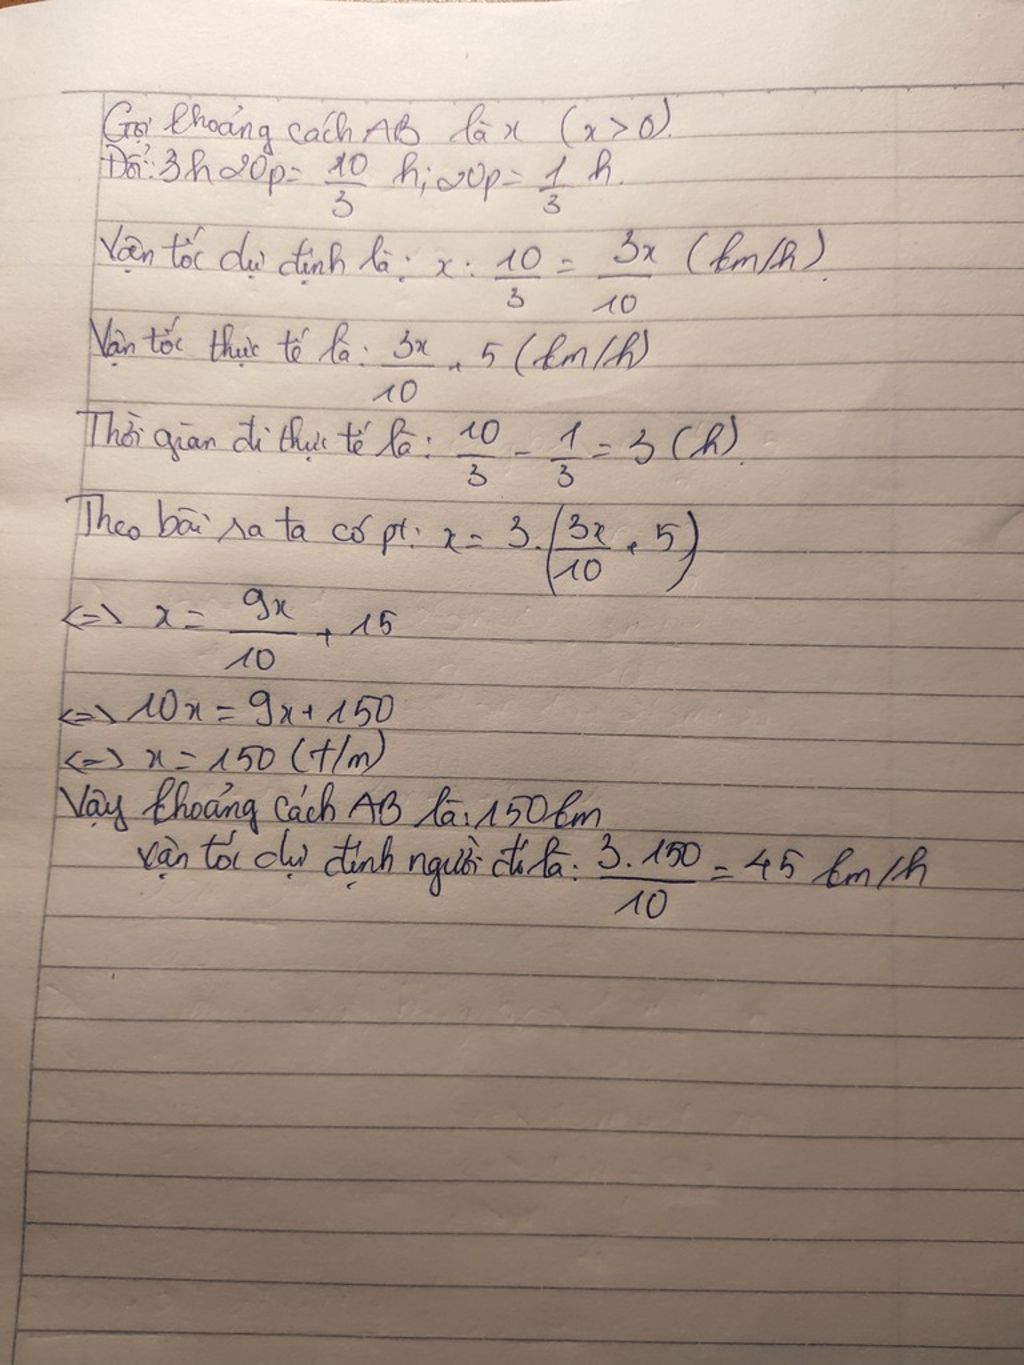 Gọi khoảng cách AB là x (x > 0).
Đổi: 3h20p = 10/3 h; 20p = 1/3 h.
Vận tốc dự định là: x : 10/3 = 3x/10 (km/h).
Vận tốc thực tế là: 3x/10 + 5 (km/h)
Thời gian đi thực tế là: 10/3 - 1/3 = 3 (h).
Theo bài ra ta có pt: x = 3.(3x/10 + 5)
<=> x = 9x/10 + 15
<=> 10x = 9x + 150
<=> x = 150 (t/m)
Vậy khoảng cách AB là: 150km
vận tốc dự định người đó là: 3.150/10 = 45 km/h